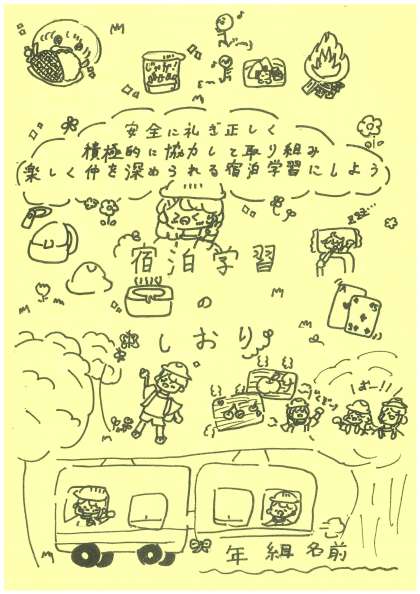 安全に礼ぎ正しく
積極的に協力して取り組み
楽しく仲を深められる宿泊学習にしよう
宿泊学習
の
しおり
年 組 名前